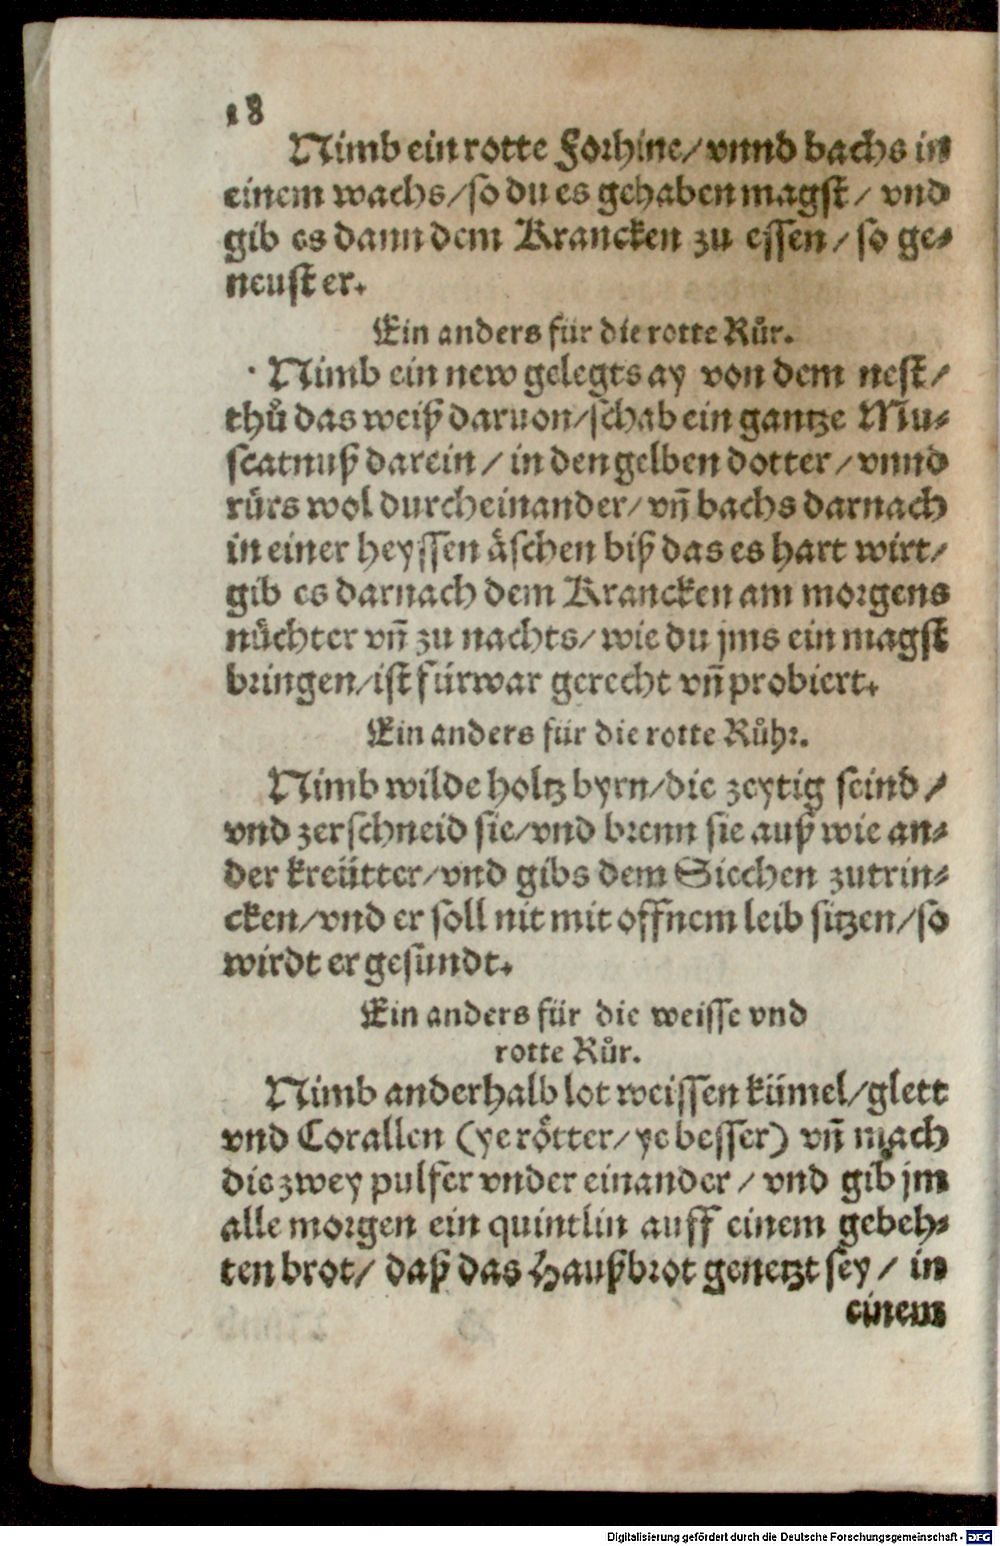 18
Nimb ein rotte Forhine/ vnnd bachs in
einem wachs/ so du es gehaben magst/ vnd
gib es dann dem Krancken zu essen/ so ge⸗
neust er.
Ein anders für die rotte Růr.
Nimb ein new gelegts ay von dem nest/
thů das weiß daruon/ schab ein gantze Mu⸗
scatnuß darein/ in den gelben dotter/ vnnd
rürs wol durcheinander/ vñ bachs darnach
in einer heyssen äschen biß das es hart wirt/
gib es darnach dem Krancken am morgens
nüchter vñ zu nachts/ wie du jms ein magst
bringen/ ist fürwar gerecht vñ probiert.
Ein anders für die rotte Růhr.
Nimb wilde holtz byrn/ die zeytig seind/
vnd zerschneid sie/ vnd brenn sie auß wie an⸗
der kreütter/ vnd gibs dem Siechen zutrin⸗
cken/ vnd er soll nit mit offnem leib sitzen/ so
wirdt er gesundt.
Ein anders für die weisse vnd
rotte Růr.
Nimb anderhalb lot weissen kümel/ glett
vnd Corallen (ye rötter/ ye besser) vñ mach
die zwey pulfer vnder einander/ vnd gib jm
alle morgen ein quintlin auff einem gebeh⸗
ten brot/ daß das Haußbrot genetzt sey/ in
einem
Digitalisierung gefördert durch die Deutsche Forschungsgemeinschaft - DFG